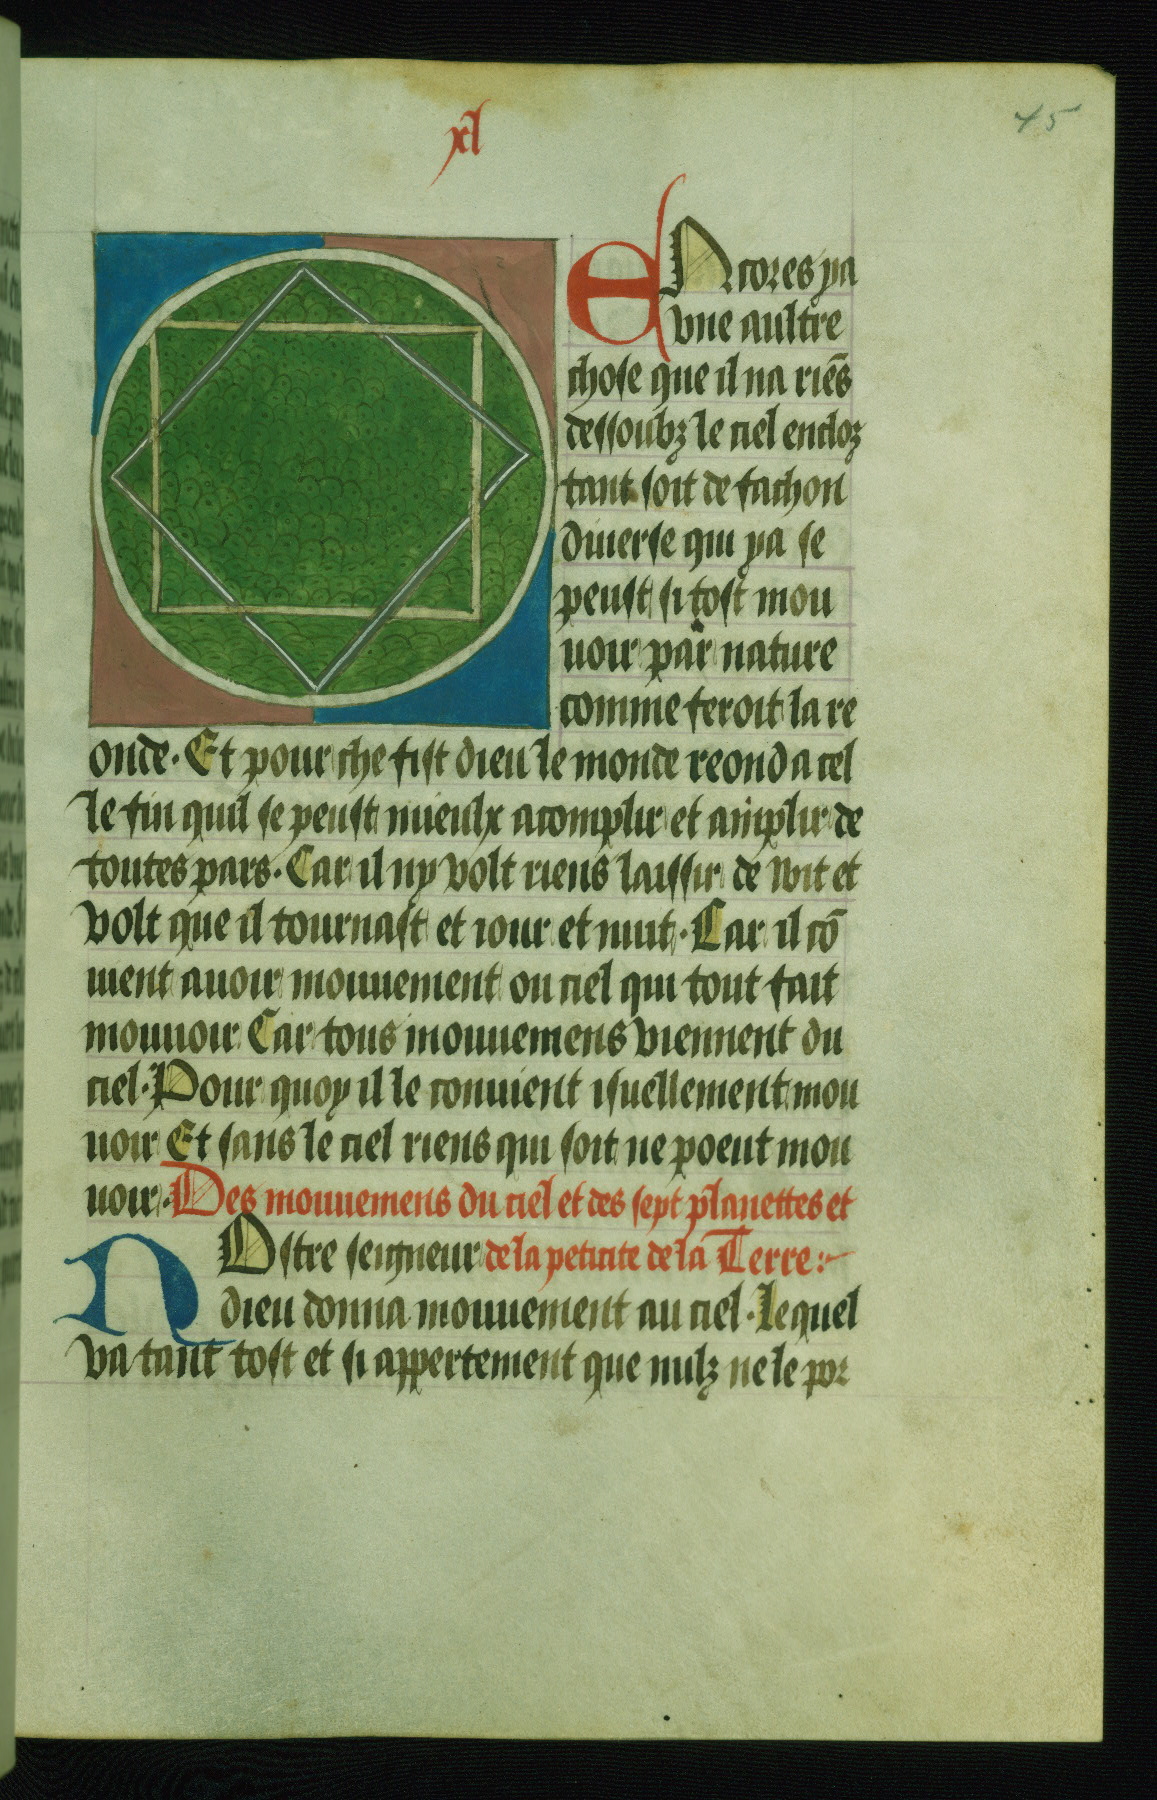 xl
45
ENcores ya
vne aultre
chose que il na riēs
dessoubz le ciel encloz
tant soit de fachon
diuerse qui ya se
peust si tost mou
uoir par nature
comme feroit la re
onde. Et pour che fist dieu le monde reond a cel
le fin quil se peust mieulx acomplir et amplir de
toutes pars. Car il ny volt riens laissir de wit et
volt que il tournast et iour et nuit. Car il cō
uient auoir mouuement ou ciel qui tout fait
mouuoir Car tous mouuemens viennent du
ciel. Pour quoy il le conuient isuellement mou
uoir Et sans le ciel riens qui soit ne poeut mou
uoir. Des mouuemens du ciel et des sept planettes et
NOstre seigneur de la peticite de la Terre:
dieu donna mouuement au ciel. Lequel
va tant tost et si appertement que nulz ne le por